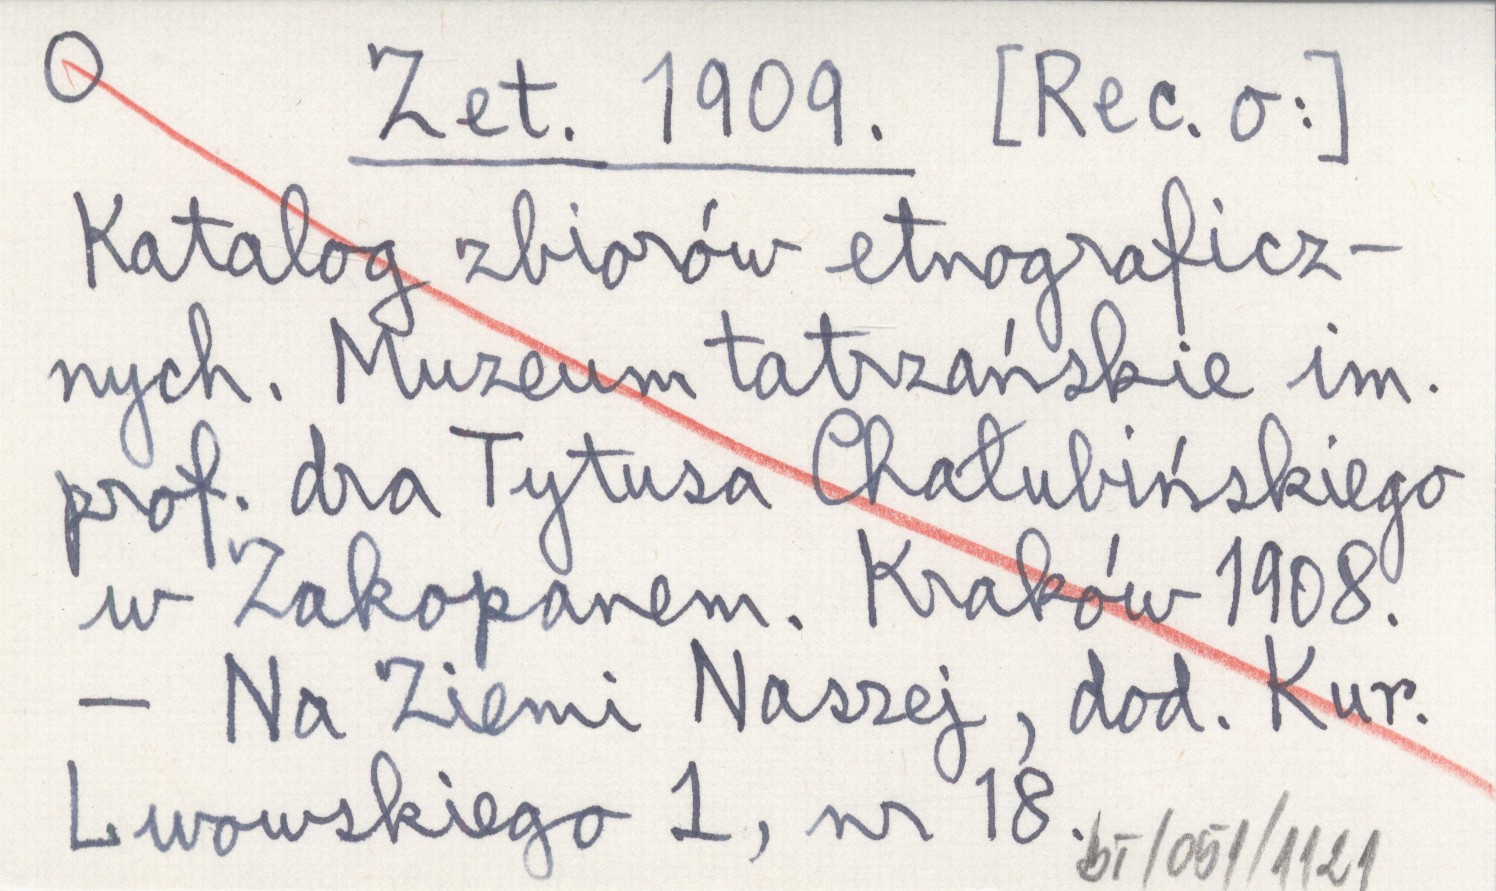 O Zet. 1909. [Rec. o:]
Katalog zbiorów etnograficz-
nych. Muzeum tatrzańskie im.
prof. dra Tytusa Chałubińskiego
w Zakopanem. Kraków 1908.
— Na Ziemi Naszej, dod. Kur.
Lwowskiego 1, nr 18.
bi/051/1121